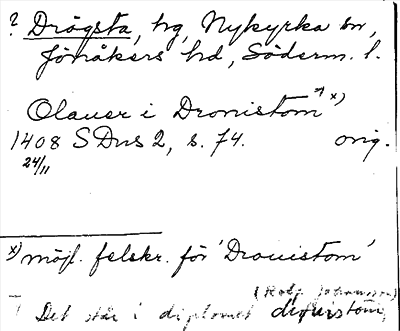 ? Drögsta, hg, Nykyrka sn,
Jönåkers hd, Söderm. l.
Olauer i Dronistom *) x)
1408 SDns 2, s. 74. orig.
24/11
x) möjl. felskr. för 'Drouistom'
(Rolf Johansson)
Det står i diplomet